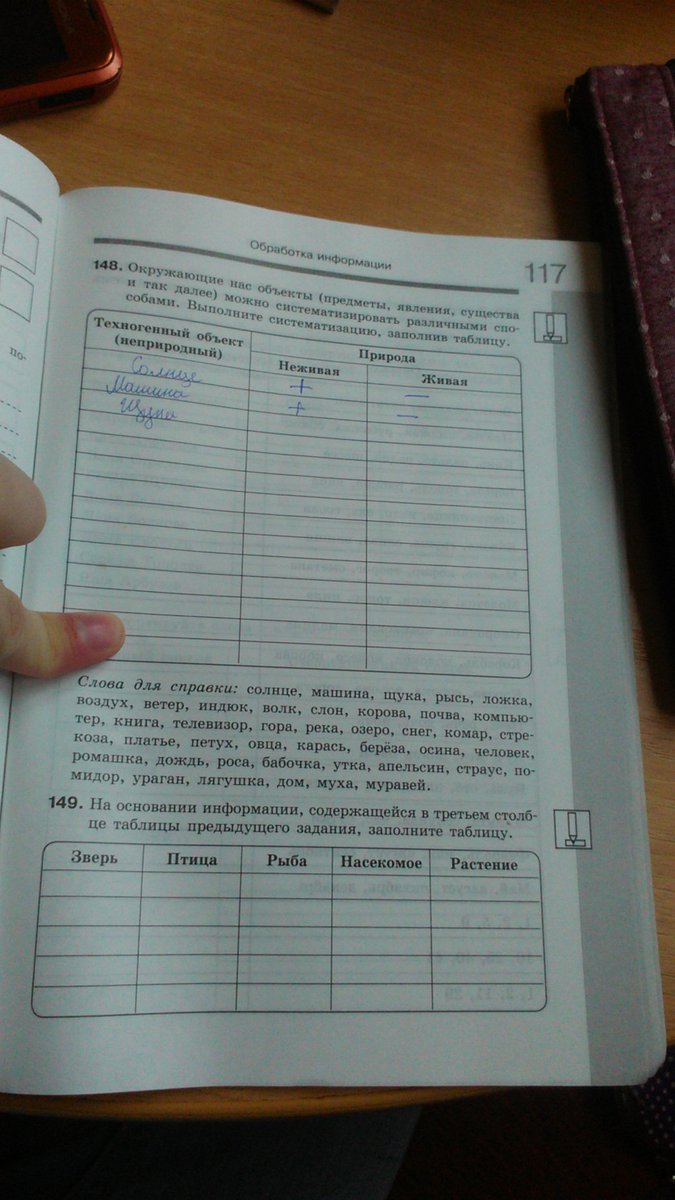 по-
Обработка информации
117
148. Окружающие нас объекты (предметы, явления, существа
и так далее) можно систематизировать различными спо-
собами. Выполните систематизацию, заполнив таблицу.
Техногенный объект
(неприродный)
Природа
Неживая
Живая
Солнце + —
Машина + —
Щука
Слова для справки: солнце, машина, щука, рысь, ложка,
воздух, ветер, индюк, волк, слон, корова, почва, компью-
тер, книга, телевизор, гора, река, озеро, снег, комар, стре-
коза, платье, петух, овца, карась, берёза, осина, человек,
ромашка, дождь, роса, бабочка, утка, апельсин, страус, по-
мидор, ураган, лягушка, дом, муха, муравей.
149. На основании информации, содержащейся в третьем столб-
це таблицы предыдущего задания, заполните таблицу.
Зверь Птица Рыба Насекомое Растение